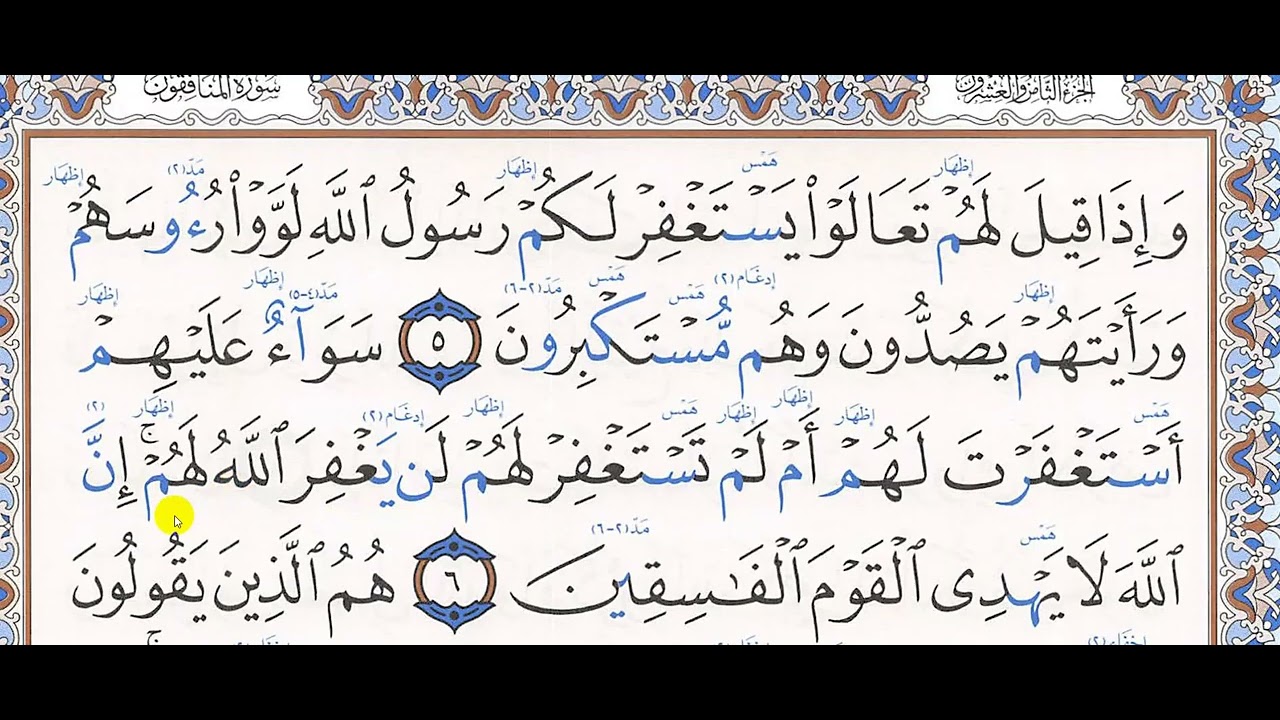 سورة المنافقون الجزء الثامن والعشرون
إظهار همس إظهار مد (٢) إظهار
وَإِذَا قِيلَ لَهُمْ تَعَالَوْا۟ يَسْتَغْفِرْ لَكُمْ رَسُولُ ٱللَّهِ لَوَّوْا۟ رُءُوسَهُمْ
إظهار إدغام (٢) همس همس مد (٢-٦) مد (٤-٥) إظهار إظهار
وَرَأَيْتَهُمْ يَصُدُّونَ وَهُم مُّسْتَكْبِرُونَ ٥ سَوَآءٌ عَلَيْهِمْ
همس إظهار إظهار إظهار همس إظهار إدغام (٢) إظهار (٢)
أَسْتَغْفَرْتَ لَهُمْ أَمْ لَمْ تَسْتَغْفِرْ لَهُمْ لَن يَغْفِرَ ٱللَّهُ لَهُمْ ۚ إِنَّ
همس مد (٢-٦)
ٱللَّهَ لَا يَهْدِى ٱلْقَوْمَ ٱلْفَـٰسِقِينَ ٦ هُمُ ٱلَّذِينَ يَقُولُونَ
إخفاء (٢)